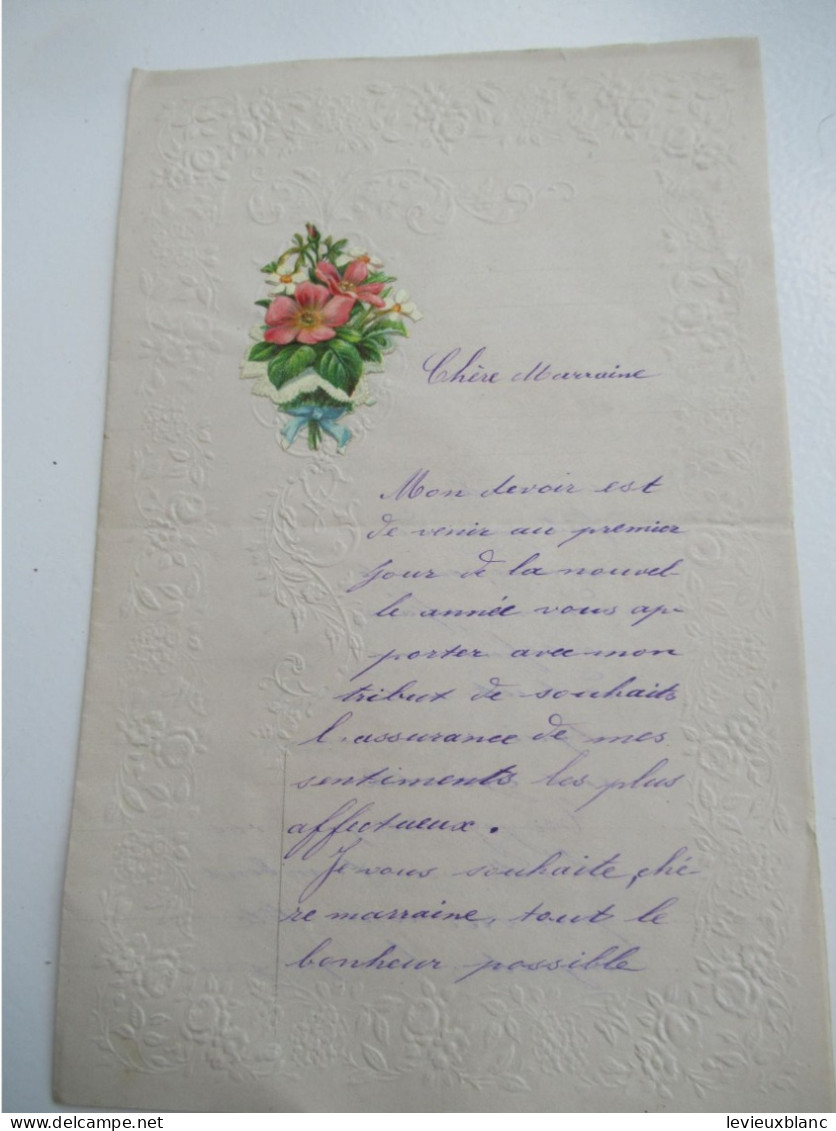 Chère Marraine
Mon devoir est
de venir au premier
jour de la nouvel
le année vous ap-
porter avec mon
tribut de souhaits
l'assurance de mes
sentiments les plus
affectueux.
Je vous souhaite, chè-
re marraine, tout le
bonheur possible
www.delcampe.net
levieuxblanc